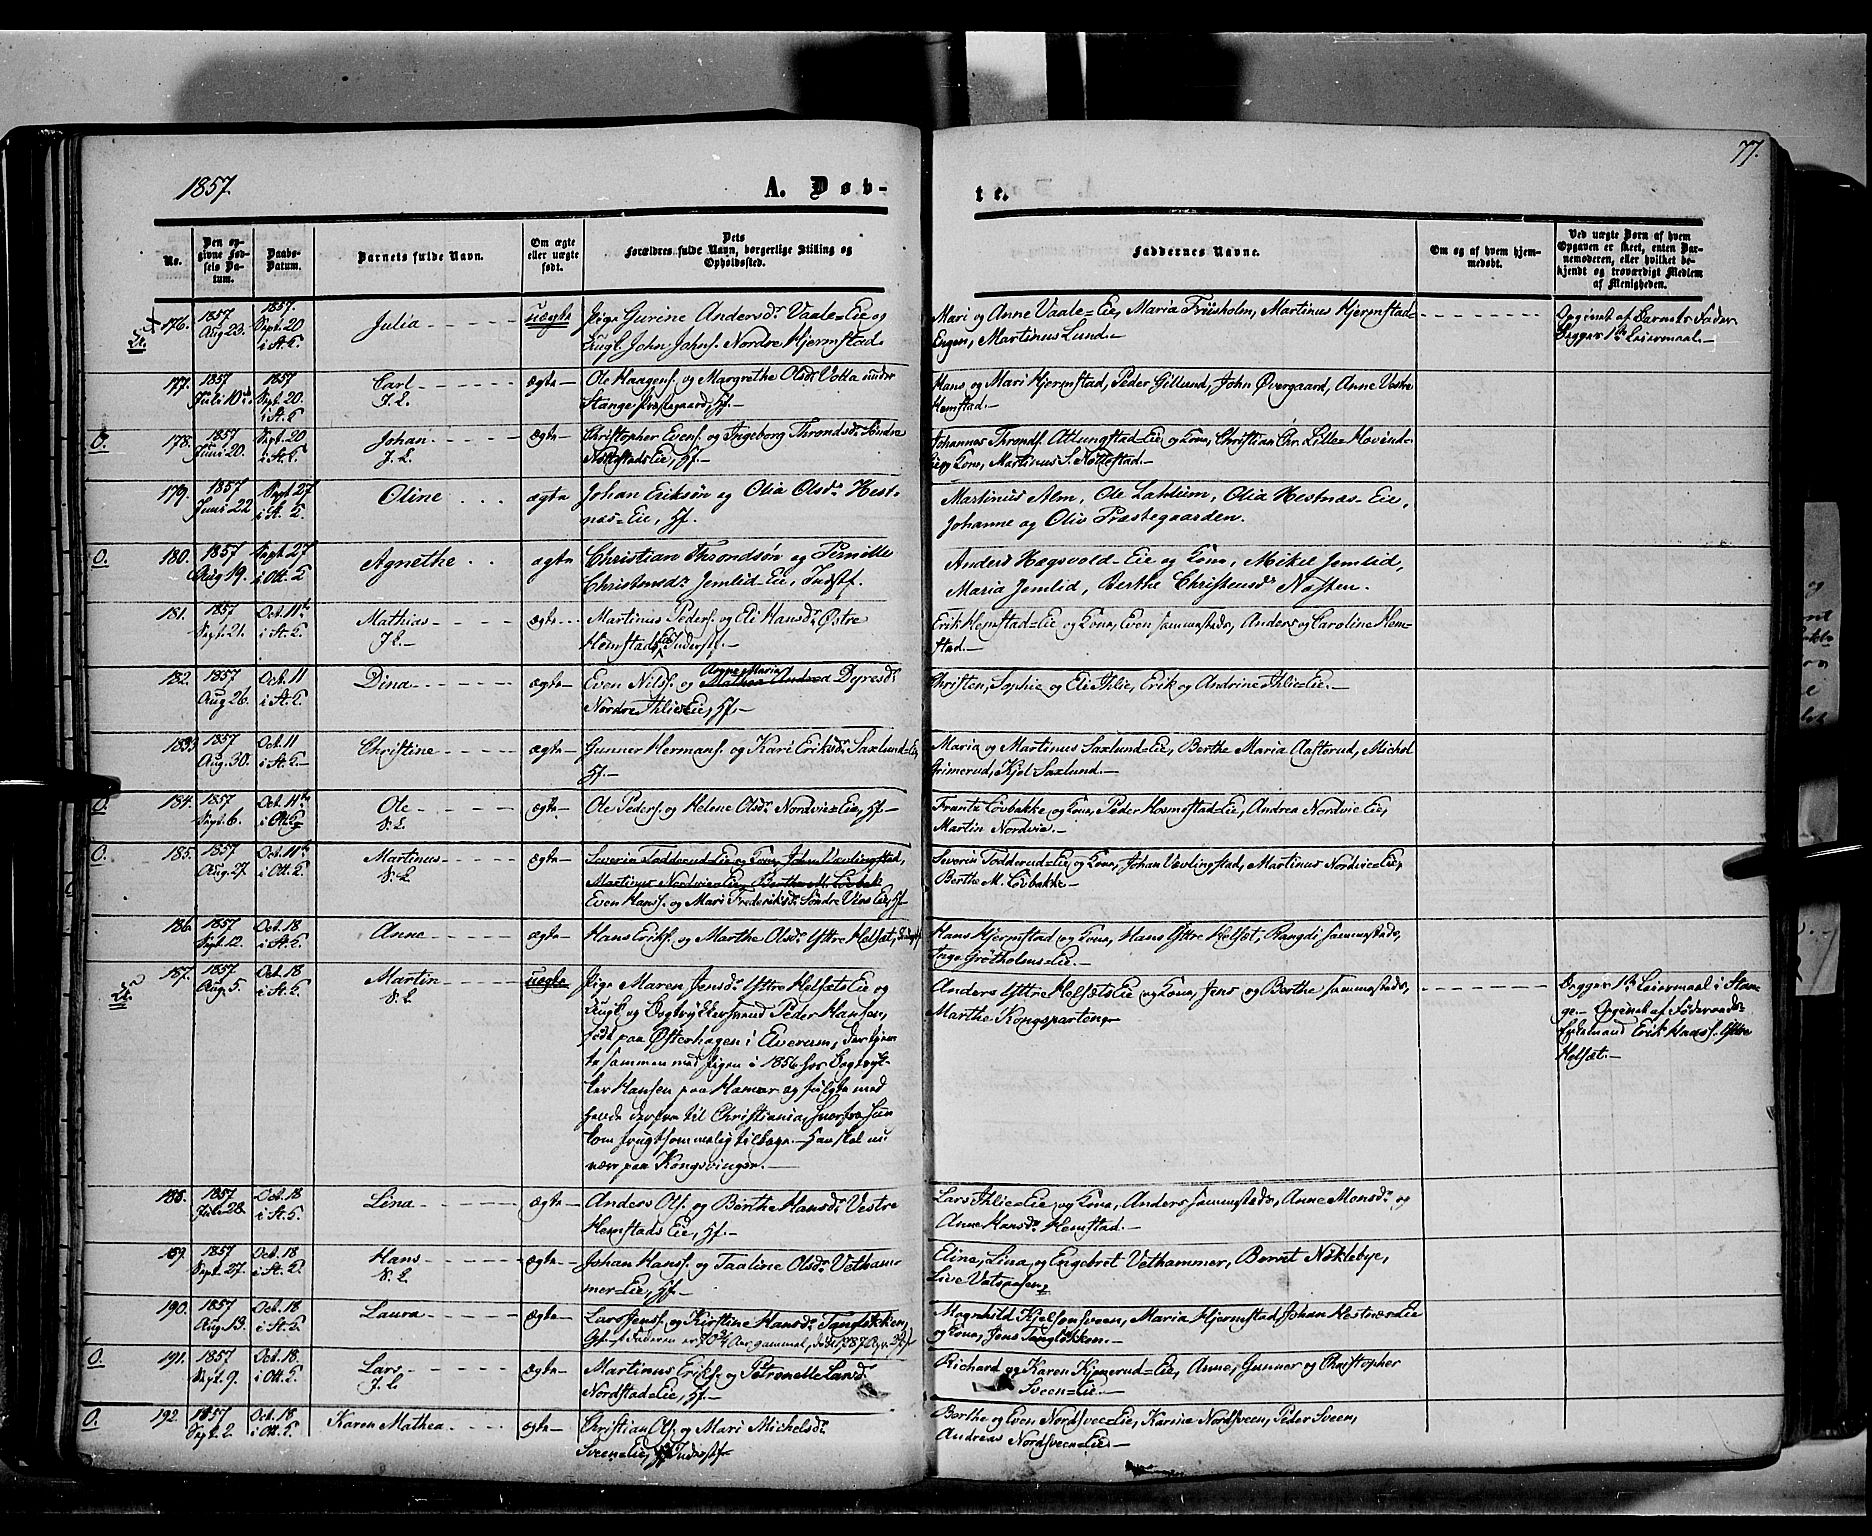 77.
1857.
A. Døb-
te.
No.
Den opgivne Fødsels Datum.
Daabs-Datum.
Barnets fulde Navn.
Om ægte eller uægte født.
Dets Forældres fulde Navn, borgerlige Stilling og Opholdssted.
Faddernes Navne.
Om og af hvem hjemmedøbt.
Ved uægte Børn af hvem Opgaven er skeet, enten Barnemoderen, eller hvilket bekjendt og troværdigt Medlem af Menigheden.
176. 1857 Aug 23. 1857. Sept. 20 i St. K. Julia uægte
Pige Gurine Andersdr. Vaale=Eie og
Ungk. John Johns. Nordre Hjermstad.
Mari og Anne Vaale=Eie, Maria Friisholm, Martinus Hjermstad=
Engen, Martinus Lund.
Opgivet af Barnets Fader
Begges 1ste Leiermaal.
177. 1857 Juli 10de 1857 Sept. 20. i St. K. Carl J. L. ægte
Ole Haagens. og Margrethe Olsdr. Votta under
Stange Præstegaard, Hf.
Hans og Mari Hjermstad, Peder Gillund, John Øvergaard, Anne Vestre
Hemstad.
O. 178. 1857 Juni 20. Sept. 20 i St. K. Johan J. L. ægte
Christopher Evens. og Ingeborg Throndsdr. Søndre
Nøttestads Eie, Hf.
Johannes Thronds. Ottungstad=Eie og Kone, Christian Chr. Lille=Hovind=
Eie og Kone, Martinus S. Nøttestad.
179. 1857 Juni 22 Sept. 27 i St. K. Oline ægte
Johan Eriksøn og Olia Olsdr. Hest-
næs=Eie, Hf.
Martinus Alm, Ole Lahlum, Olia Hestnæs=Eie,
Johanne og Oliv Præstegaarden.
O. 180. 1857 Aug 19. Sept. 27 i Ott. K. Agnethe ægte
Christian Throndsøn og Pernille
Christensdr. Jemlid=Eie, Inderstf.
Anders Hagsvold=Eie og Kone, Mikel Jemlid,
Maria Jemlid, Berthe Christensdr. Nøsten.
181. 1857 Sept. 21. Oct. 11te i St. K. Mathias J. L. ægte
Martinus Peders. og Eli Hansdr. Østre
Hemstads Eie, Inderstf.
Erik Hemstad=Eie og Kone, Even sammesteds, Anders og Caroline Hem-
stad.
182. 1857 Aug 26. Oct. 11 i St. K. Dina ægte
Even Nils. og Anne Maria Mathea Andrea Dyresdr.
Nordre Ihlie=Eie, Hf.
Christen, Sophie og Eli Ihlie, Erik og Andrine Ihlie=Eie.
183. 1857 Aug. 30. Oct. 11 i St. K. Christine ægte
Gunner Hermans. og Kari Eriksdr. Saxlund=Eie,
Hf.
Maria og Martinus Saxlund=Eie, Berthe Maria Aasterud, Michel
Grimerud, Kjel Saxlund.
O. 184. 1857 Sept. 6. Oct. 11te i Ott. K. Ole S. L. ægte
Ole Peders. og Helene Olsdr. Nordvie=Eie, Hf.
Frantz Løvbakke og Kone, Peder Hovmestad=Eie, Andrea Nordvie Eie,
Martin Nordvie.
O. 185. 1857 Aug. 27. Oct. 11te i Ott. K. Martinus S. L. ægte
Severin Todderud=Eie og Kone, Johan Vævlingstad,
Martinus Nordvie=Eie, Berthe M. Løvbak
Even Hans. og Mari Frederiksdr. Søndre Vins Eie, Hf.
Severin Todderud=Eie, og Kone, Johan Vævlingstad, Martinus Nordvie=Eie,
Berthe M. Løvbakke.
186. 1857 Sept. 12. Oct. 18 i St. K. Anne ægte
Hans Eriks. og Marthe Olsdr. Yttre Helsæt,
Hans Hjermstad og Kone, Hans Yttre Helsæt, Rangdi sammesteds,
Inge Grøtholms=Eie.
187. 1857. Aug. 5. Oct. 18 i St. K. Martin S. L. uægte
Pige Maren Jensdr. Yttre Helsæts Eie og
Ungk. og Bogtrykkersvend Peder Hansen,
født paa Østerhagen i Elverum, der tjen-
te sammen med Pigen i 1856 hos Bogtryk-
ker Hansen paa Hamar og fulgte med
hende derfra til Christiania, hvorfra hun
kom frugtsommelig tilbage. Han skal nu
være paa Kongsvinger.
Anders Yttre Helsæts Eie og Kone, Jens og Berthe sammesteds,
Marthe Kongsparten.
Begges 1ste Leiermaal i Stan-
ge. Opgivet af Føderaads-
Erik Hans. Yttre
Helsæt.
188. 1857 Juli 28. Oct. 18 i St. K. Lina ægte
Anders Ols. og Berthe Hansdr. Vestre
Hemstads Eie, Hf.
Lars Ihlie=Eie og Kone, Anders sammesteds, Anne Monsdr. og
Anne Hansdr. Hemstad.
189. 1857 Sept. 27. Oct. 18 i St. K. Hans S. L. ægte
Johan Hans. og Taaline Olsdr. Vetham-
mer=Eie, Hf.
Eline, Lina og Engebret Vethammer, Bernt Nøklebye,
Live Vatspasen.
190. 1857 Aug. 13. Oct. 18 i St. K. Laura ægte
Lars Jens. og Kirstine Hansdr. Tangløkken,
Magnhild Kjelsønsveen, Maria Hjermstad, Johan Hestnæs Eie
og Kone, Jens Tangløkken.
O. 191. 1857 Sept. 9. Oct. 18. i Ott. K. Lars J. L. ægte
Martinus Eriks. og Petronelle Larsd.
Nordstad=Eie, Hf.
Richard og Karen Kjemerud=Eie, Anne, Gunner og Christopher
Sveen=Eie.
O. 192. 1857 Sept. 2. Oct. 18 i Ott. K. Karen Mathea ægte
Christian Ols. og Mari Michelsdr.
Sveen=Eie, Inderstf.
Berthe og Even Nordsveen=Eie, Karine Nordsveen, Peder Sveen,
Andreas Nordsveen=Eie.